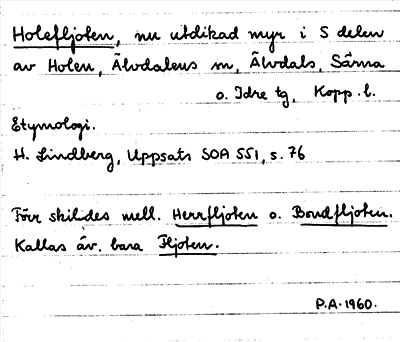 Holefljoten, nu utdikad myr i S delen
av Holen, Älvdalens sn, Älvdals, Särna
o. Idre tg, Kopp. l.
Etymologi.
H. Lindberg, Uppsats SOA 551, s. 76
Förr skildes mell. Herrfljoten o. Bondfljoten.
Kallas äv. bara Fljoten.
P.A. 1960.